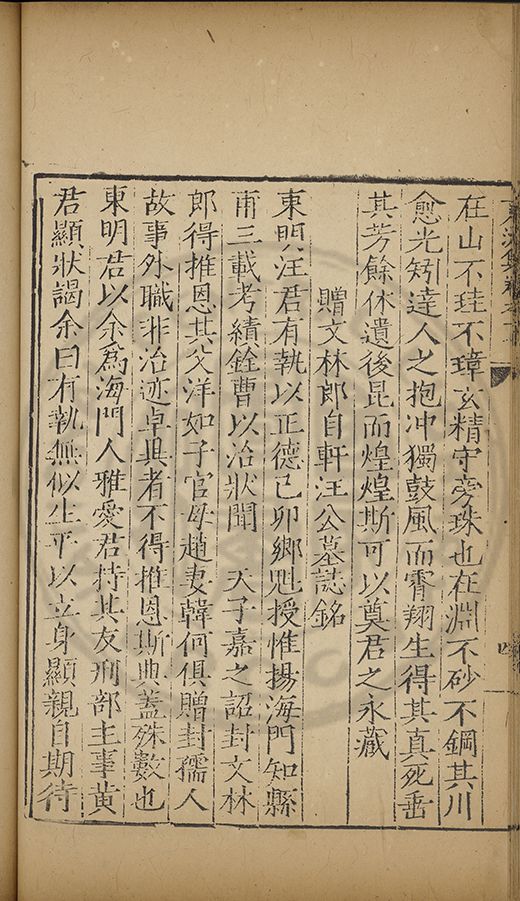 在山不珪不璋玄精守旁珠也在淵不砂不鋼其川
愈光矧達人之抱冲獨鼓風而霄翔生得其真死垂
其芳餘休遺後昆而煌煌斯可以奠君之永藏
贈文林郎自軒汪公墓誌銘
東明汪君有執以正德己卯鄉魁授惟揚海門知縣
甫三載考績銓曹以治狀聞 天子嘉之詔封文林
郎得推恩其父洋如子官母趙妻韓何俱贈封孺人
故事外職非治迹卓異者不得推恩斯典蓋殊數也
東明君以余為海門人雅愛君持其友刑部主事黃
君顯狀謁余曰有執無似生平以立身顯親自期待
四